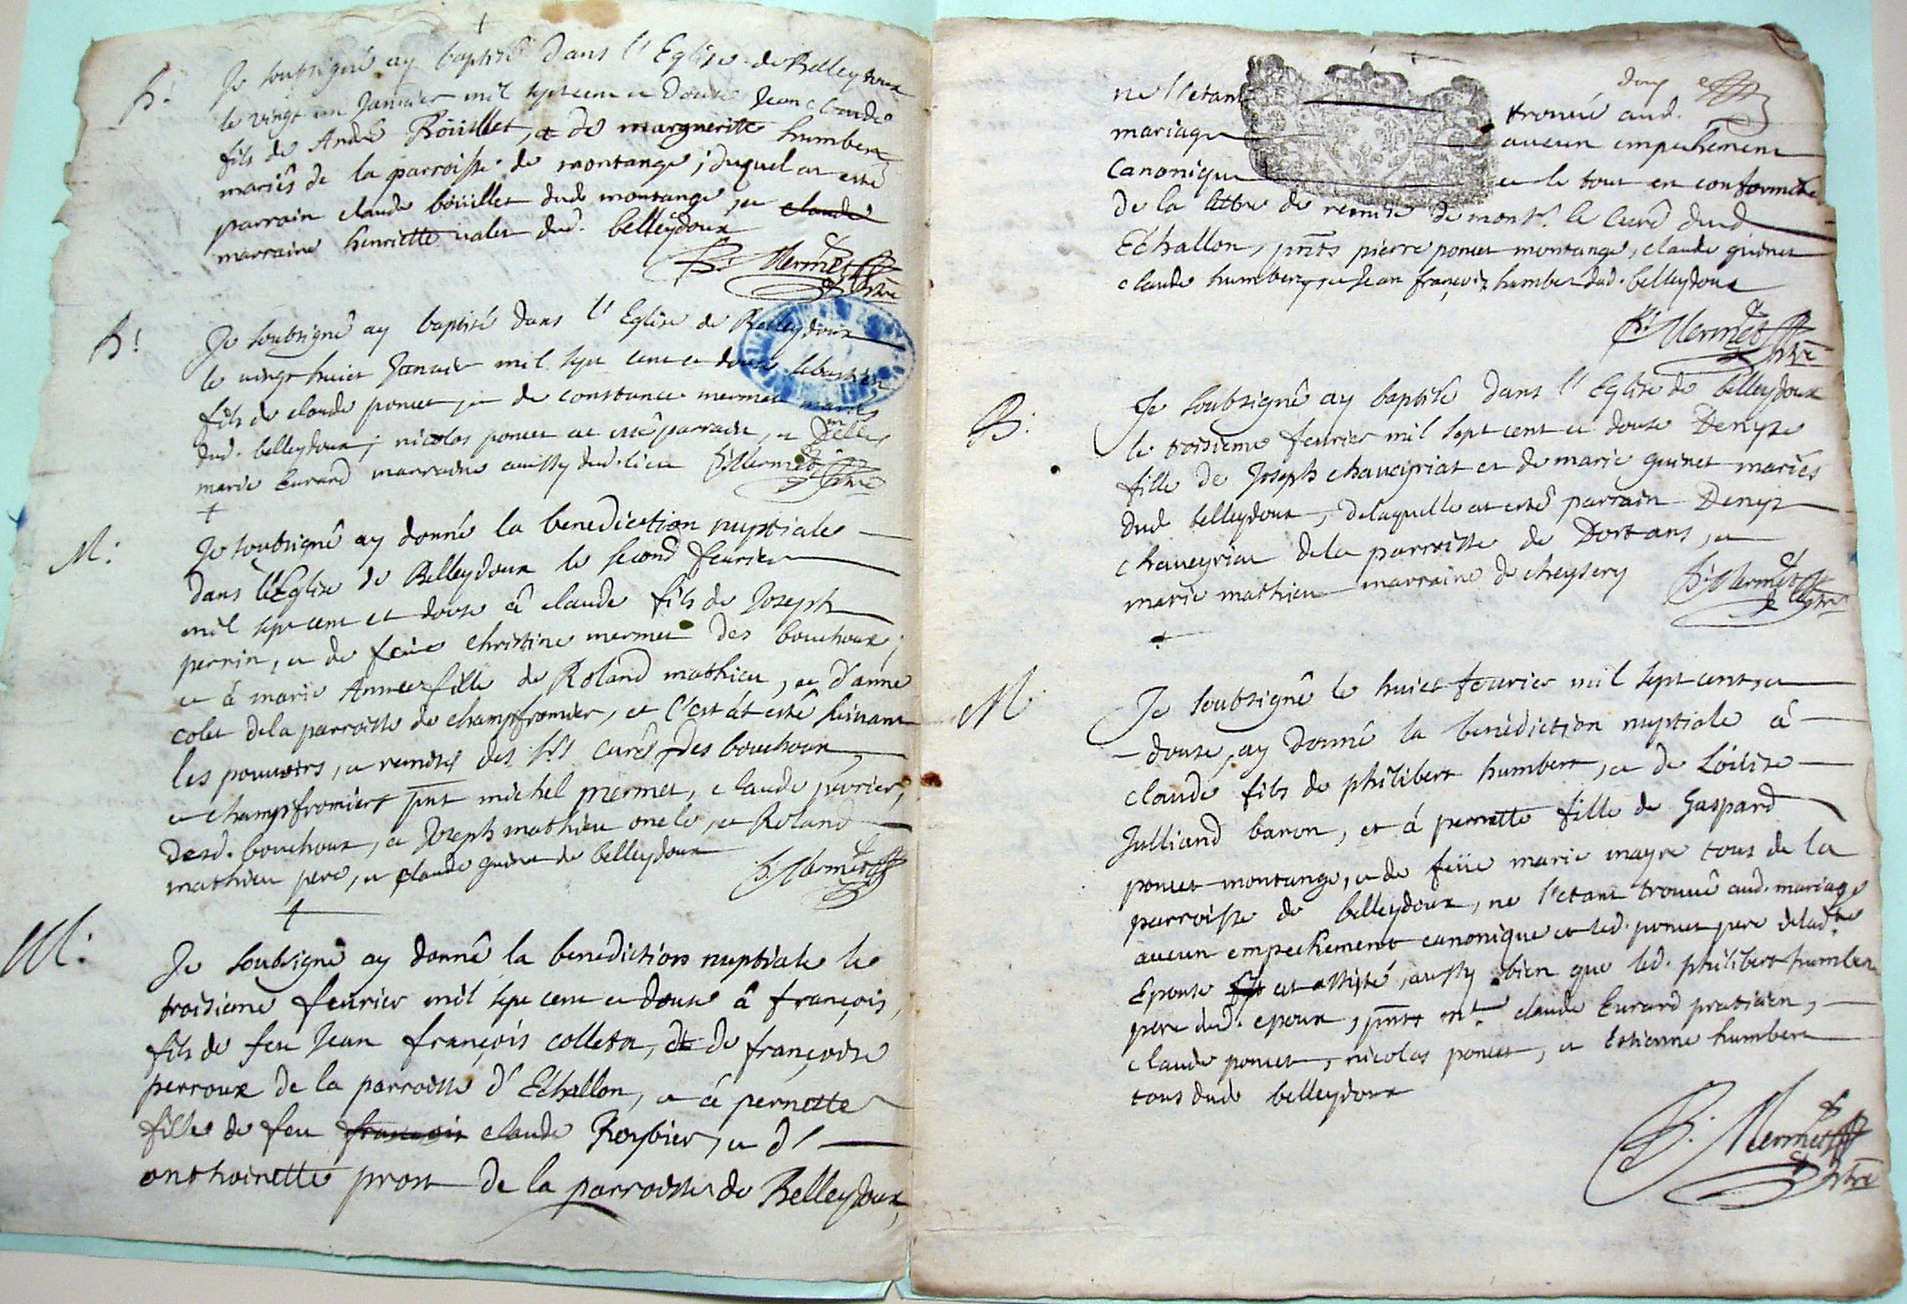 B: Je soubsigné ay baptisé dans l'Eglise de Belleydoux
le vingt un Janvier mil sept cent et douse Jean Claude
fils de André Roüillet, et de marguerite humbert
mariés de la parroisse de montange; duquel at esté
parrain claude boüillet dud montange, et claude
marraine henriette valet dud. belleydoux
B. Mermet ptre
B: Je soubsigné ay baptisé dans l'Eglise de Belleydoux
le vingt huict Janvier mil sept cent et douse sebastien
fils de claude poncet, et de constance mermet mariés
dud. belleydoux; nicolas poncet at esté parrain, et
marie Eurard marraine aussy dud. lieu B. Mermet ptre
M: Je soubsigné ay donné la benediction nuptiale
dans l'Eglise de Belleydoux le second feurier
mil sept cent et douse â claude fils de Joseph
perrin, et de feüe christine mermet des bouchoux;
et â marie Anne fille de Roland mathieu, et d'anne
colet de la parroisse de champfromier, et c'est ât esté suivant
les pouuoirs, et remises des srs curés des bouchoux,
et champfromier pnt michel mermet, claude perrier,
desd. bouchoux, et Joseph mathieu oncle, et Roland
mathieu pere, et claude guinet de belleydoux
B. Mermet
M: Je soubsigné ay donnê la benediction nuptiale le
troisieme feurier mil sept cent et douse â françois,
fils de feu Jean françois colleta, et de françoise
perroux de la parroisse d'Echallon, et â pernette
fille de feu françois claude Rossier, et d'
anthoinette prost de la parroisse de Belleydoux,
ne s'etant trouué aud.
mariage aucun empeschement
canonique et le tout en conformité
de la lettre de remise de monsr. le Curé dud
Echallon, pnts pierre poncet montange, claude guinet
claude humbert, et Jean françois humbert dud. belleydoux
B. Mermet ptre
B: Je soubsignê ay baptisé dans l'Eglise de belleydoux
le troisieme feurier mil sept cent et douse Denyse
fille de Joseph chaueyriat et de marie guinet mariés
dud belleydoux, de laquelle at esté parrain Denys
chaueyriat de la parroisse de Dortans, et
marie mathieu marraine de cheysery B. Mermet ptre
M Je soubsignê le huict feurier mil sept cent, et
douse, ay donné la benediction nuptiale â
claude fils de philibert humbert, et de Loüise
Julliand baron, et â pernette fille de Gaspard
poncet montange, et de feüe marie mayre tous de la
parroisse de belleydoux, ne s'etant trouué aud. mariage
aucun empechement canonique et led. poncet pere de lad.
Epouse at assisté, aussy bien que led. philibert humbert
pere dud. epoux, pnts mre claude Eurard praticien,
claude poncet, nicolas poncet, et estienne humbert
tous dud belleydoux
B. Mermet ptre